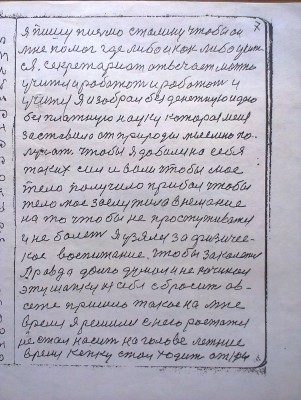 7
я пишу писмо сталину чтобы он
мне помог где либо и как либо
ся. секретариат отвечает
учит и работат и работат и
учит я изобрал безденежную
бесплатную науку которая меня
заставила от природы мыслию по-
лучат чтобы я добился на себя
таких сил и воли чтобы мое
тело получило чтобы
тело мое заслужила внимание
на то что бы не простуживатся
и не болет я узялся за физичес-
кое воспитание чтобы
Правда долго думал и не
эту шапку из себя сбросит об-
сете пришло такое на мне
время я решил с нею ростатся
не стал насит на голове летнее
время кепку стал ходит